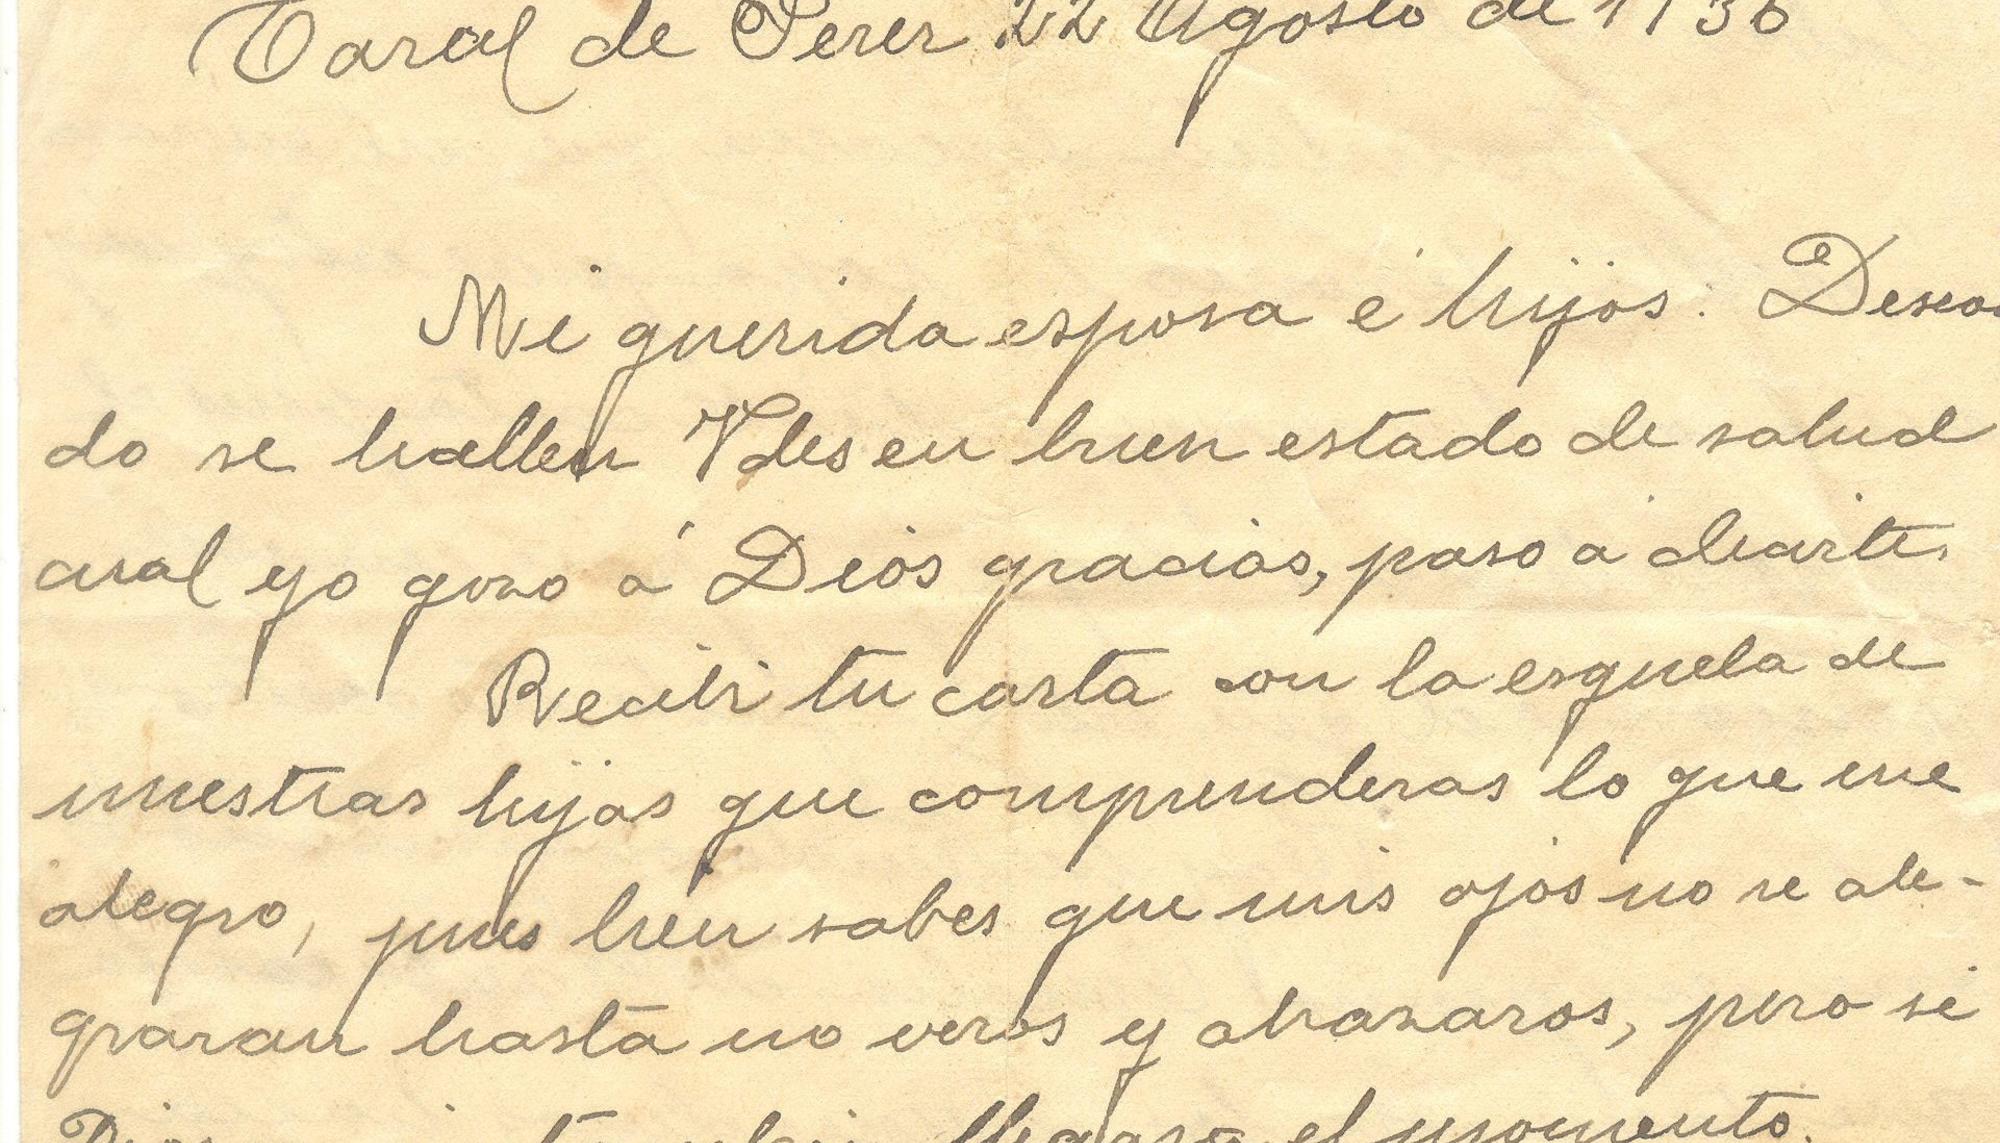 Toral de Perer 22 Agosto de 1936
Mi querida esposa é hijos: Desean
do se hallen Vdes en buen estado de salud
cual yo gozo á Dios gracias, paso a decirte.
Recibi tu carta con la esquela de
nuestras hijas que comprenderas lo que me
alegro, pues bien sabes que mis ojos no se ale-
graran hasta no veros y abrazaros, pero si
Dios llegara el momento.